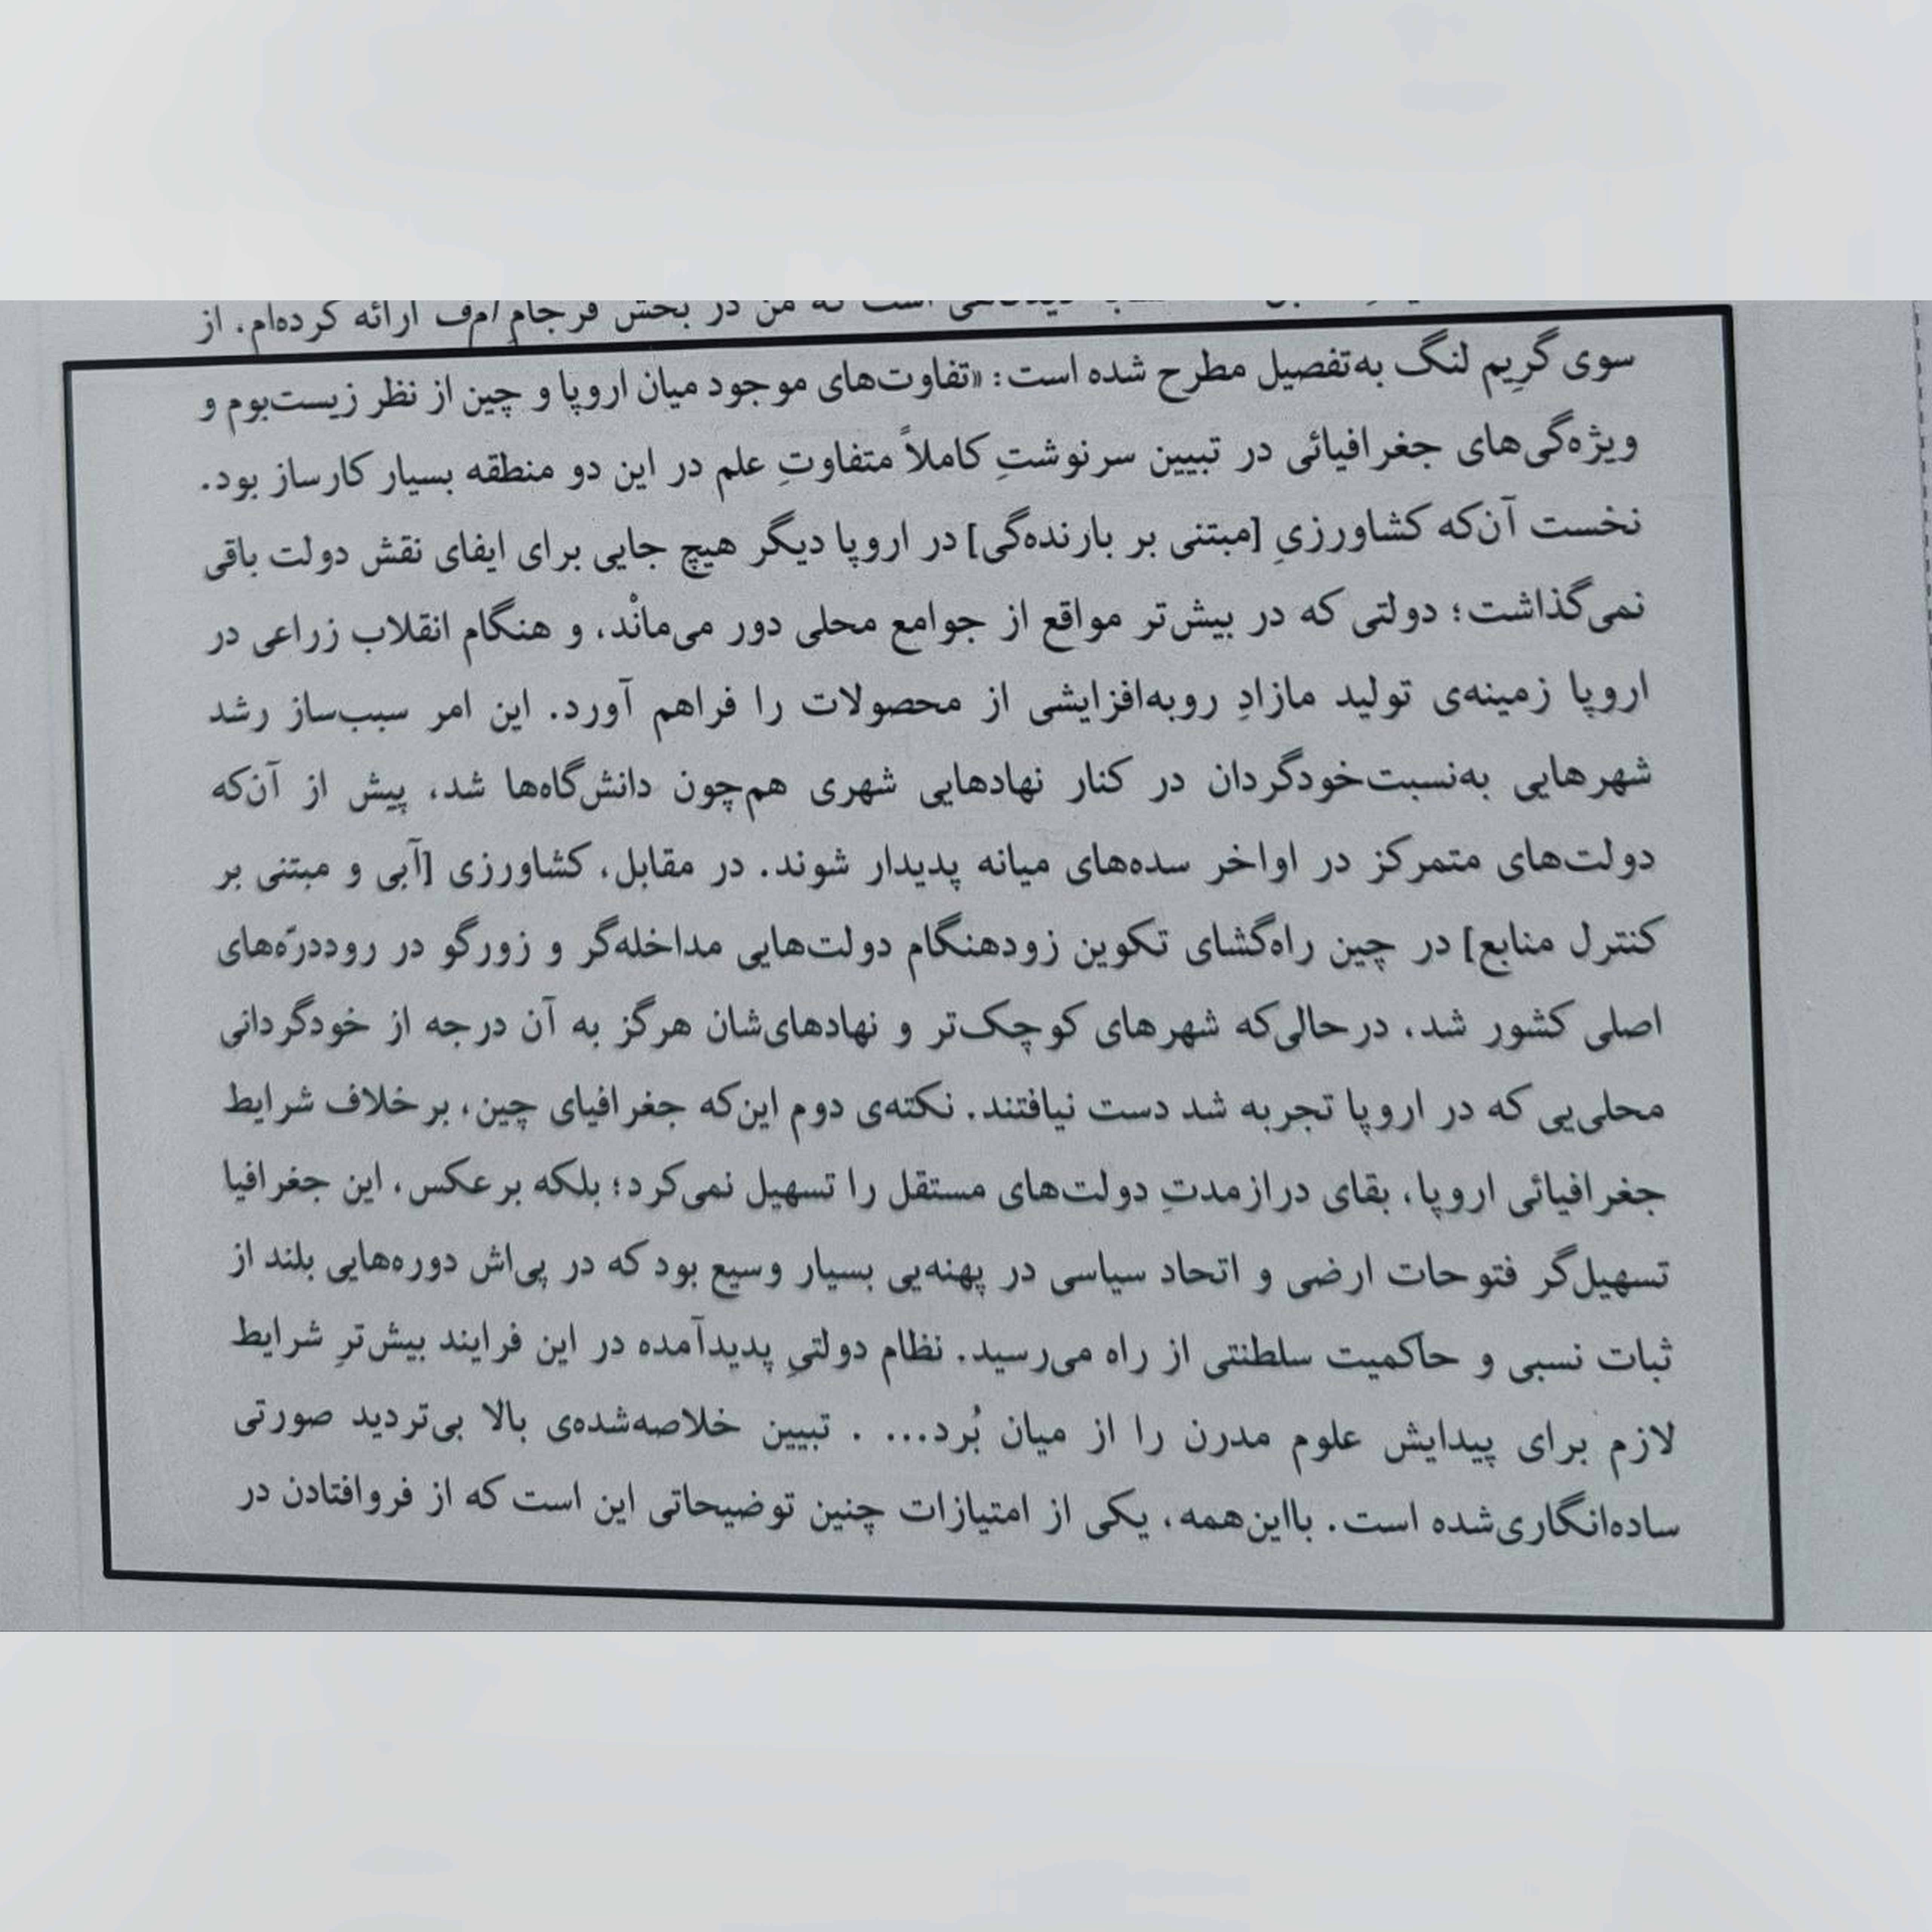 است که من در بخش فرجامِ امف ارائه کرده‌ام. از
سوی گرِیم لنگ به‌تفصیل مطرح شده است: «تفاوت‌های موجود میان اروپا و چین از نظر زیست‌بوم و
ویژه‌گی‌های جغرافیائی در تبیین سرنوشتِ کاملاً متفاوتِ علم در این دو منطقه بسیار کارساز بود.
نخست آن‌که کشاورزیِ [مبتنی بر بارنده‌گی] در اروپا دیگر هیچ جایی برای ایفای نقش دولت باقی
نمی‌گذاشت؛ دولتی که در بیش‌تر مواقع از جوامع محلی دور می‌مانْد، و هنگام انقلاب زراعی در
اروپا زمینه‌ی تولید مازادِ روبه‌افزایشی از محصولات را فراهم آورد. این امر سبب‌ساز رشد
شهرهایی به‌نسبت‌خودگردان در کنار نهادهایی شهری هم‌چون دانش‌گاه‌ها شد، پیش از آن‌که
دولت‌های متمرکز در اواخر سده‌های میانه پدیدار شوند. در مقابل، کشاورزی [آبی و مبتنی بر
کنترل منابع] در چین راه‌گشای تکوین زودهنگام دولت‌هایی مداخله‌گر و زورگو در روددرّه‌های
اصلی کشور شد، درحالی‌که شهرهای کوچک‌تر و نهادهای‌شان هرگز به آن درجه از خودگردانی
محلی‌یی که در اروپا تجربه شد دست نیافتند. نکته‌ی دوم این‌که جغرافیای چین، برخلاف شرایط
جغرافیائی اروپا، بقای درازمدتِ دولت‌های مستقل را تسهیل نمی‌کرد؛ بلکه برعکس، این جغرافیا
تسهیل‌گر فتوحات ارضی و اتحاد سیاسی در پهنه‌یی بسیار وسیع بود که در پی‌اش دوره‌هایی بلند از
ثبات نسبی و حاکمیت سلطنتی از راه می‌رسید. نظام دولتیِ پدیدآمده در این فرایند بیش‌ترِ شرایط
لازم برای پیدایش علوم مدرن را از میان بُرد... . تبیین خلاصه‌شده‌ی بالا بی‌تردید صورتی
ساده‌انگاری‌شده است. بااین‌همه، یکی از امتیازات چنین توضیحاتی این است که از فروافتادن در